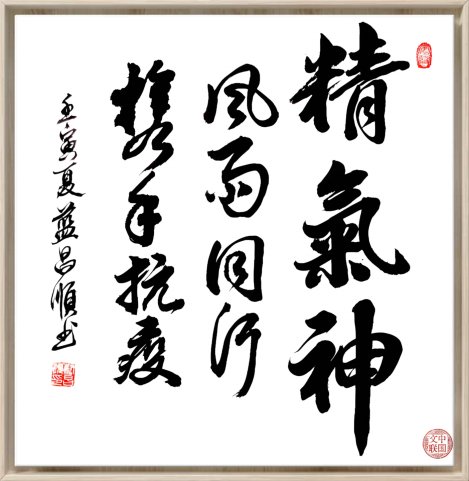 精氣神
風雨同行
携手抗疫
壬寅夏藍昌順书
中国文联